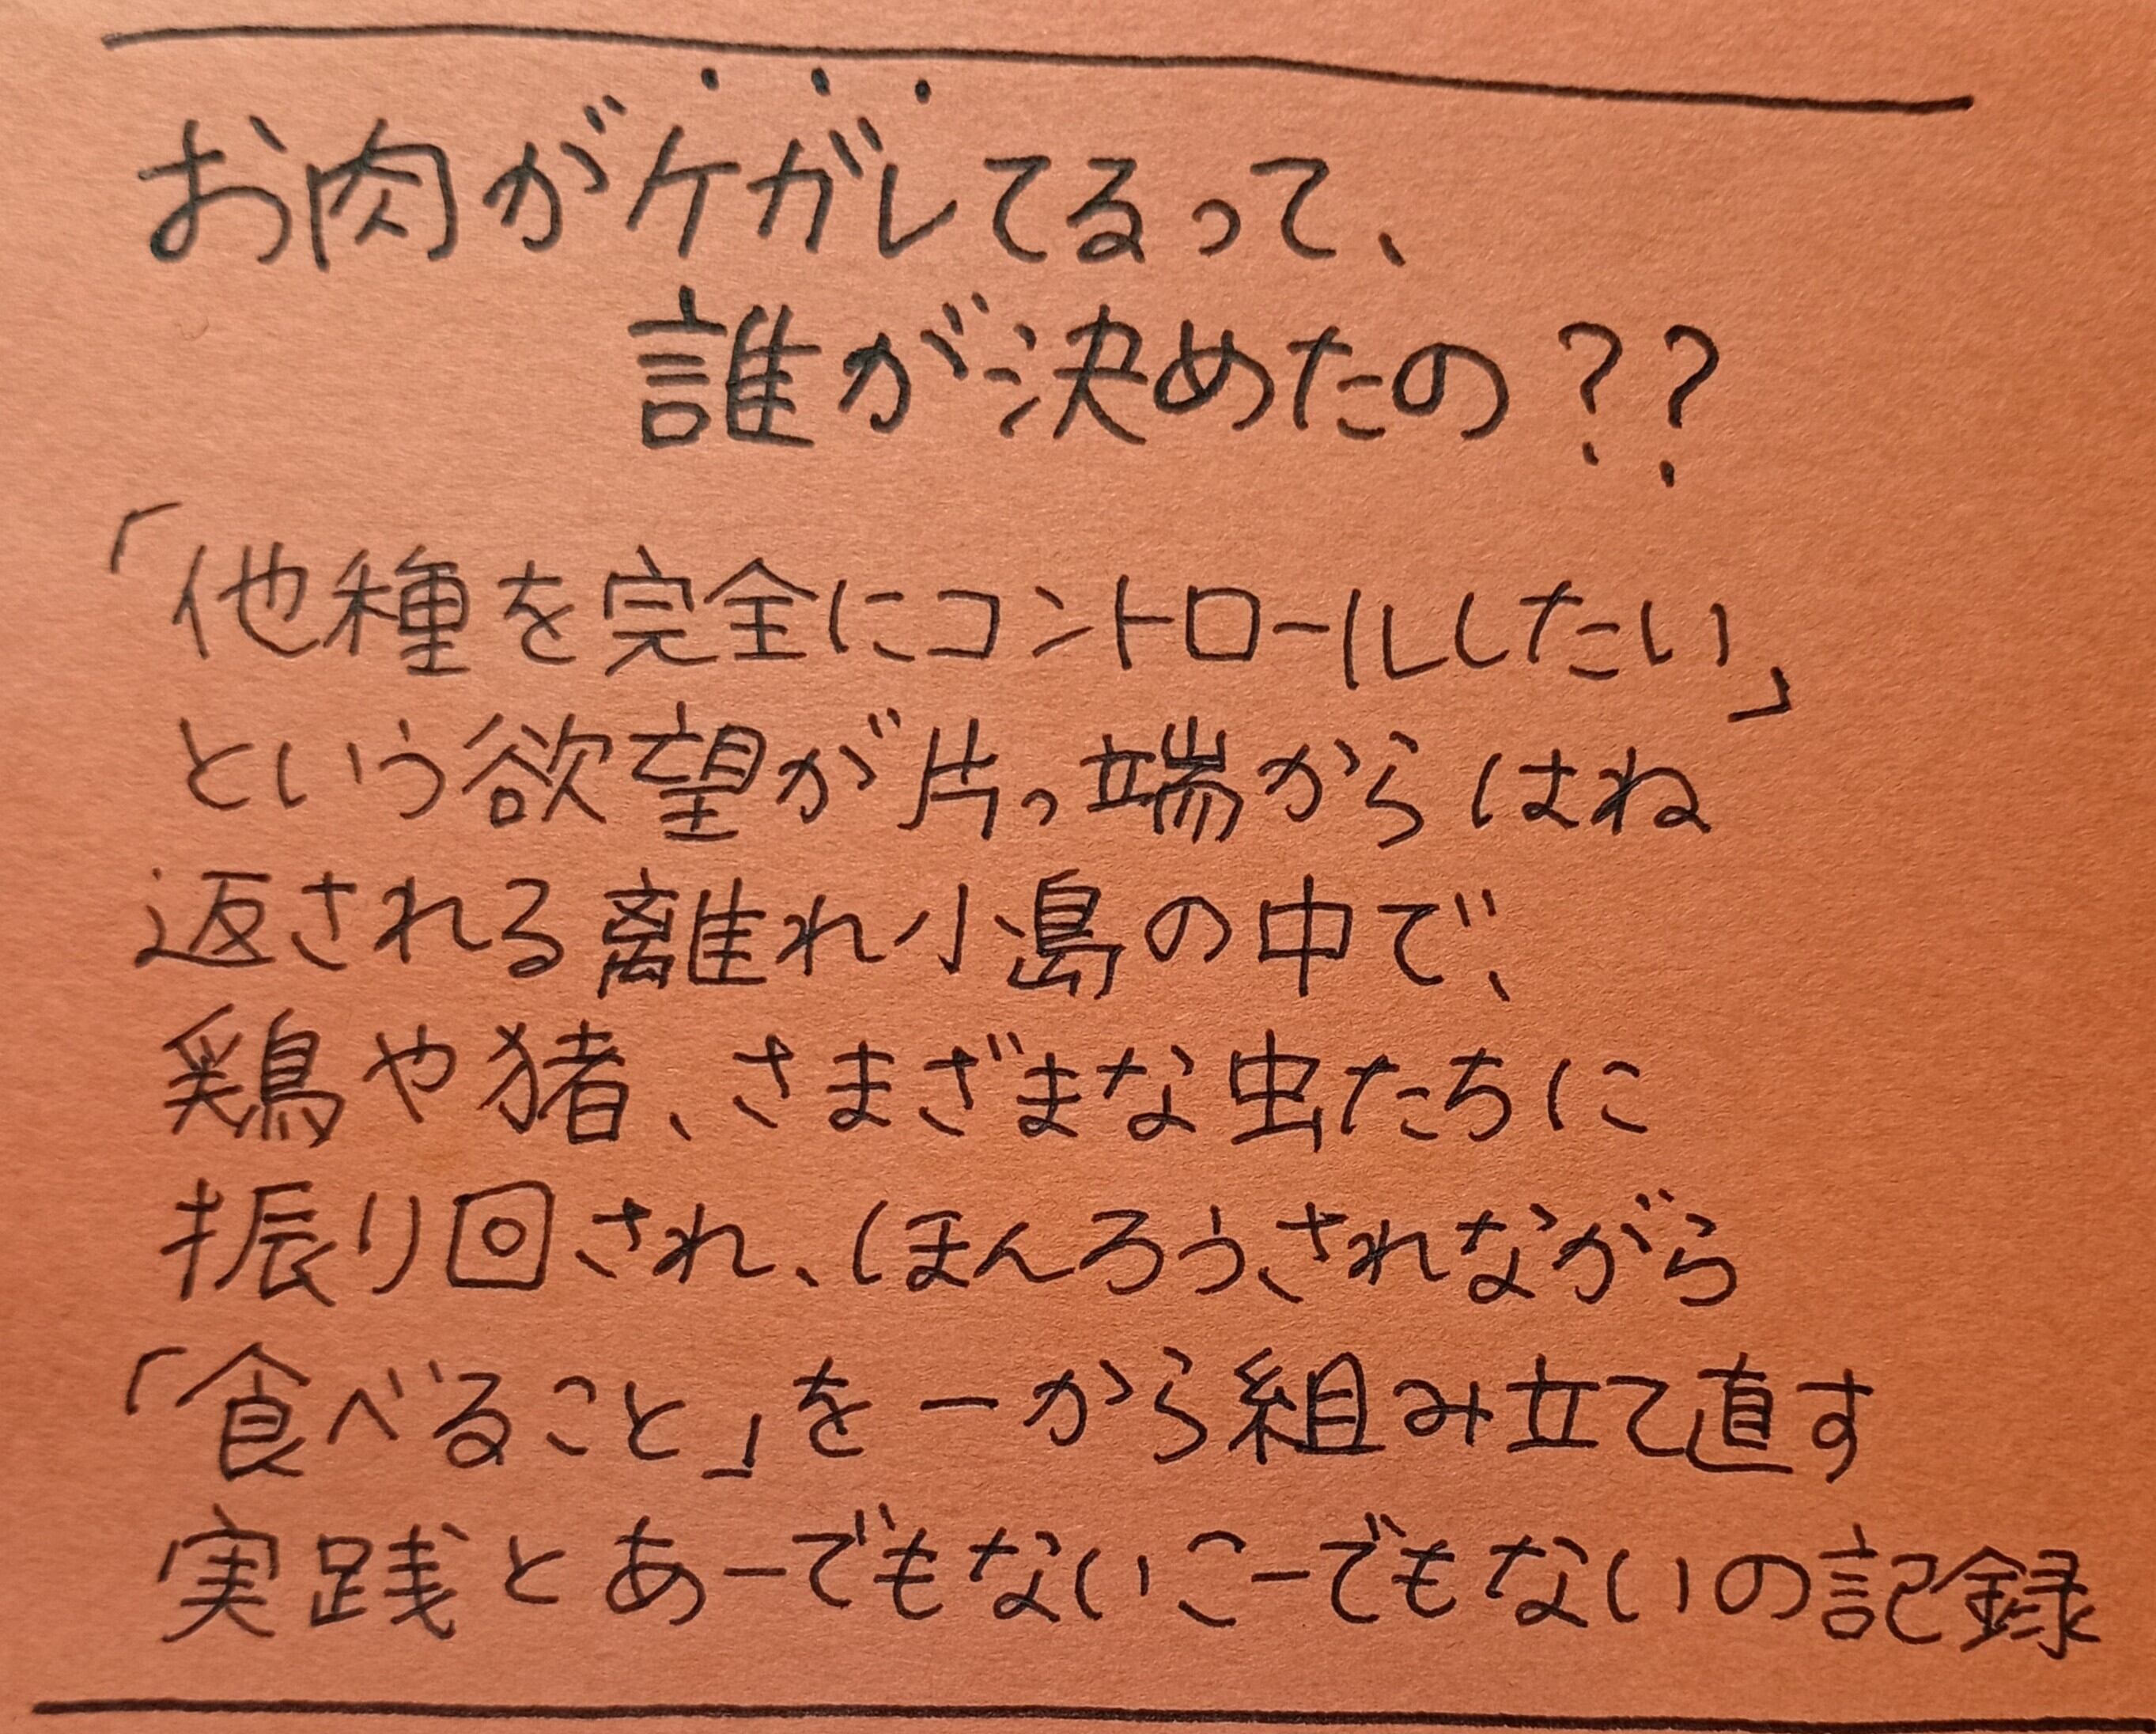 お肉がケガレてるって、
誰が決めたの??
「他種を完全にコントロールしたい」
という欲望が片っ端からはね
返される離れ小島の中で、
鶏や猪、さまざまな虫たちに
振り回され、ほんろうされながら
「食べること」を一から組み立て直す
実践とあーでもないこーでもないの記録